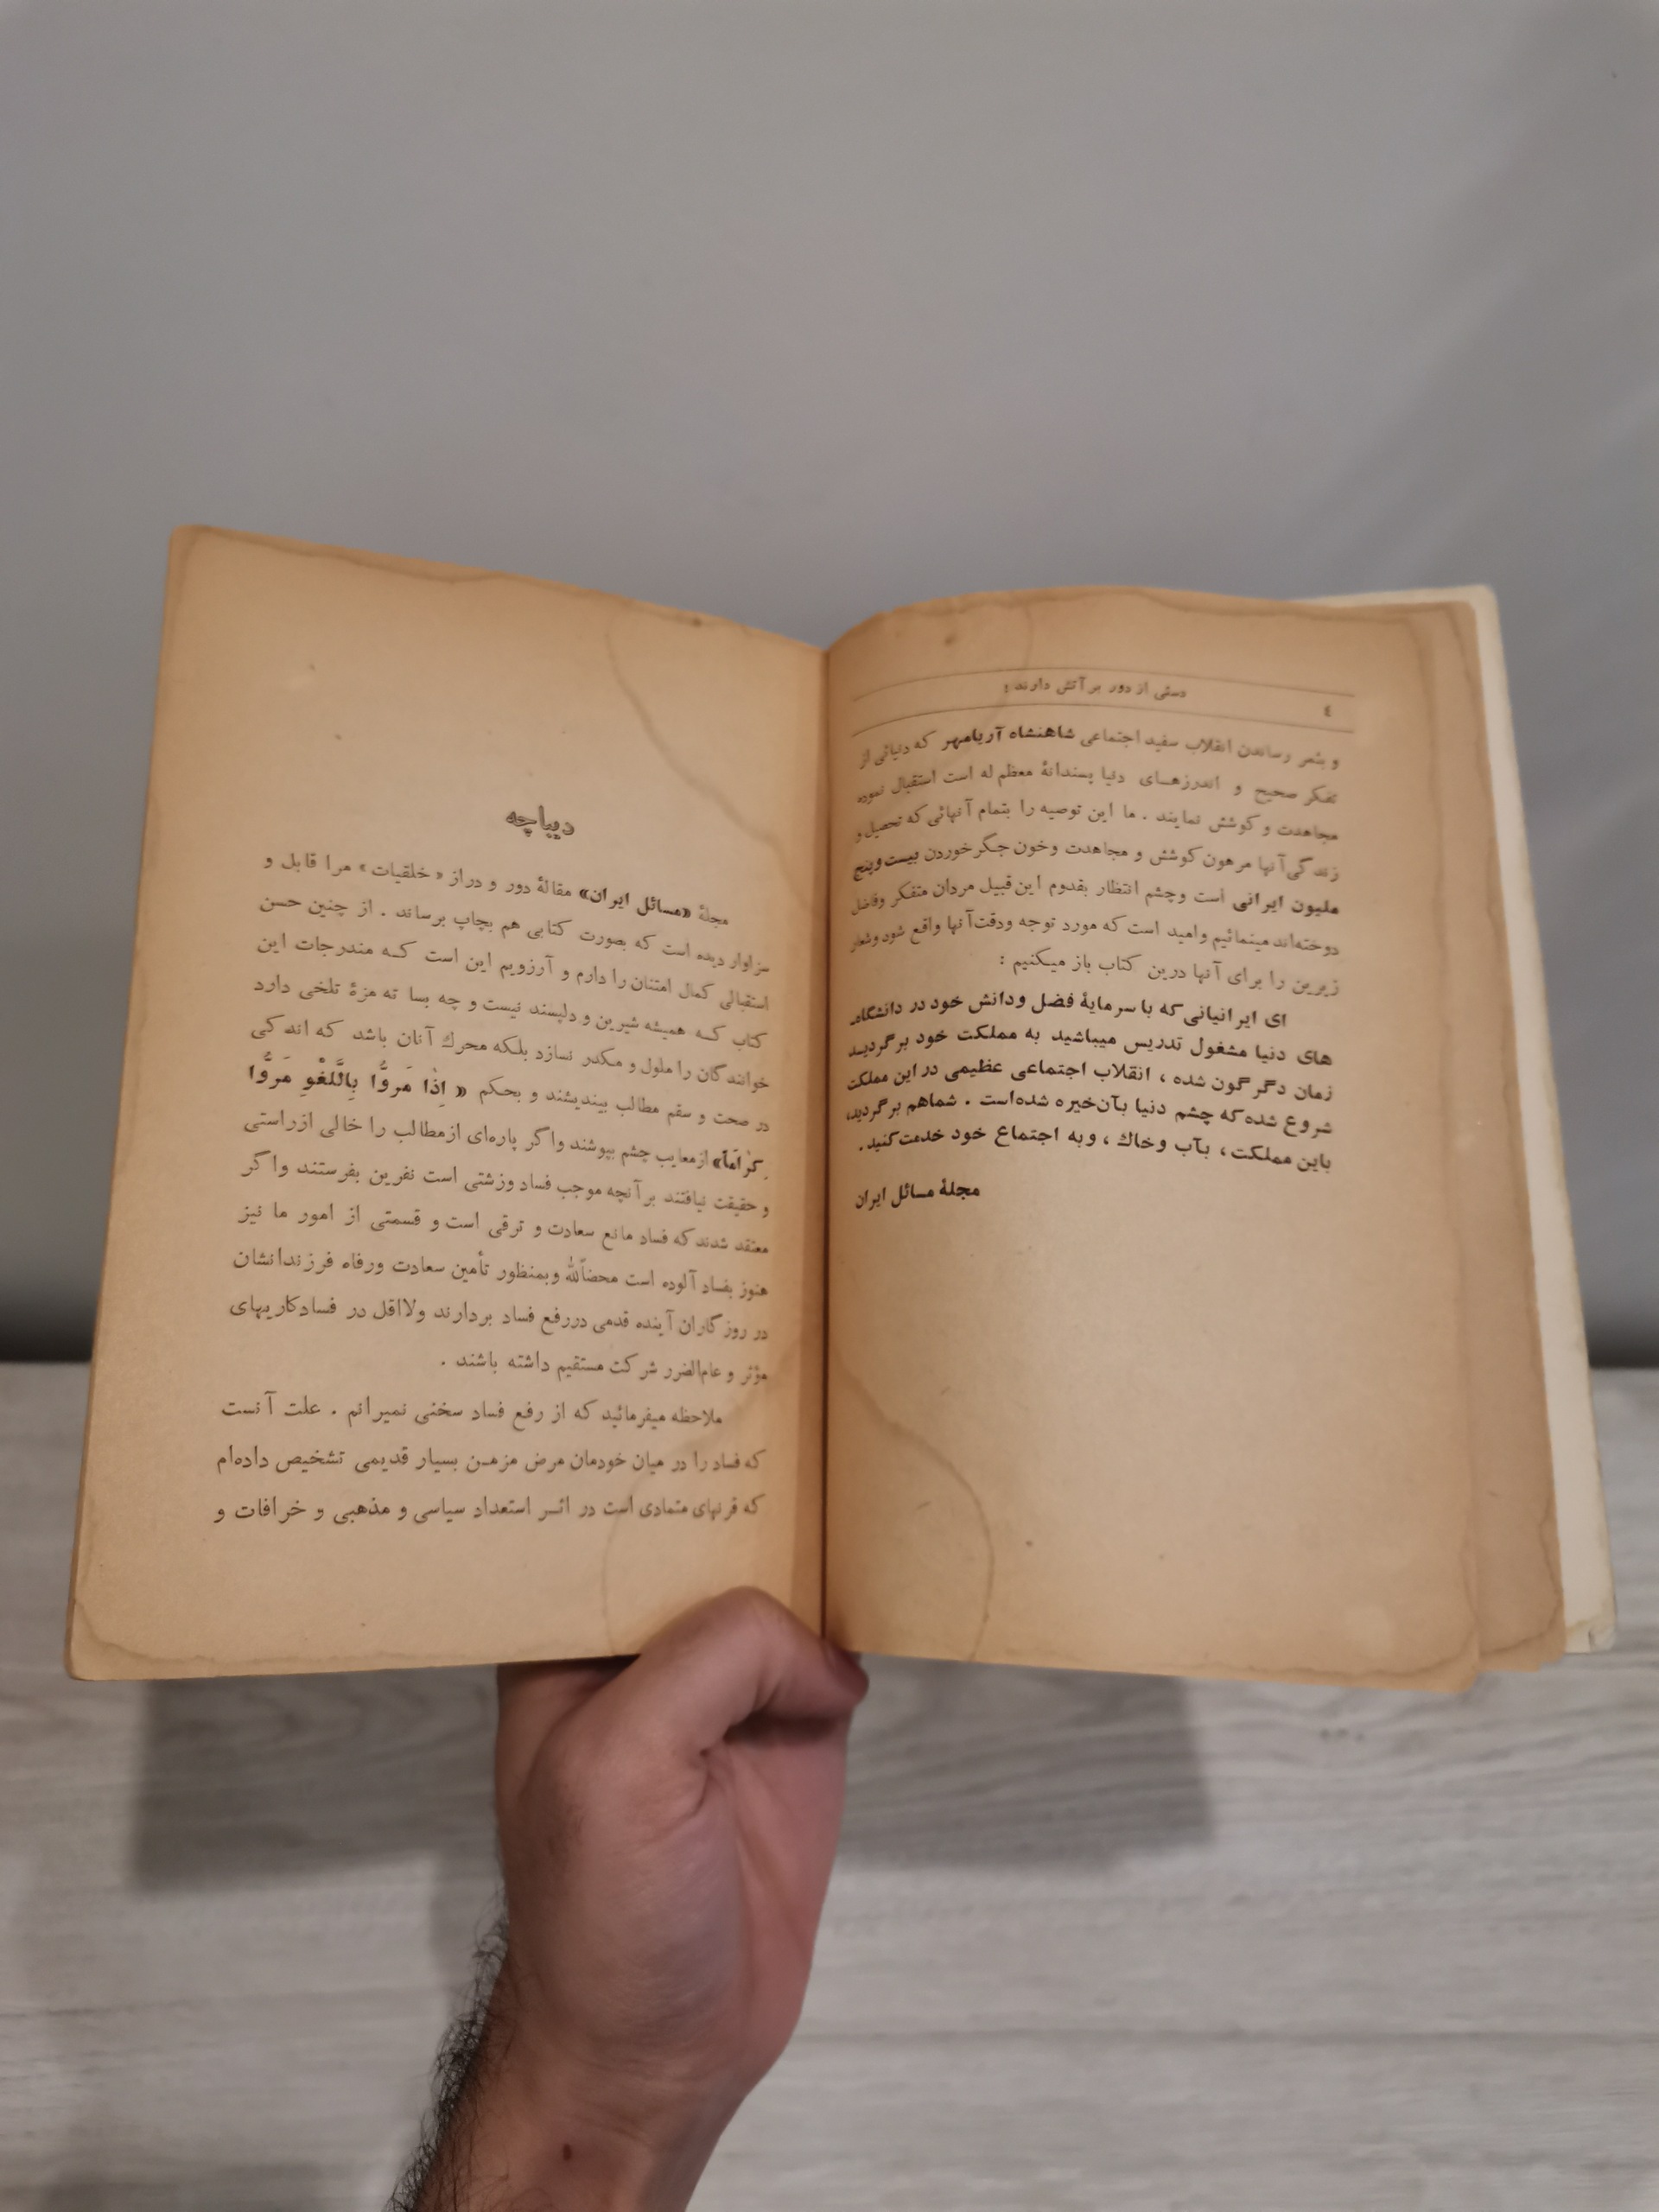 دستی از دور بر آتش دارند:
٤
و بثمر رساندن انقلاب سفید اجتماعی شاهنشاه آریامهر که دنیائی از
تفکر صحیح و اندرزهـای دنیا پسندانهٔ معظم له است استقبال نموده
مجاهدت و کوشش نمایند . ما این توصیه را بتمام آنهائی که تحصیل و
زندگی آنها مرهون کوشش و مجاهدت وخون جگر خوردن بیست وپنج
ملیون ایرانی است وچشم انتظار بقدوم این قبیل مردان متفکر وفاضل
دوخته‌اند مینمائیم وامید است که مورد توجه ودقت آنها واقع شود وشعار
زیرین را برای آنها درین کتاب باز میکنیم :
ای ایرانیانی که با سرمایهٔ فضل ودانش خود در دانشگاه‌ـ
های دنیا مشغول تدریس میباشید به مملکت خود برگردیـد
زمان دگرگون شده ، انقلاب اجتماعی عظیمی در این مملکت
شروع شده که چشم دنیا بآن‌خیره شده‌است . شماهم برگردید،
باین مملکت ، بآب وخاك ، وبه اجتماع خود خدمت کنید .
مجلهٔ مسائل ایران
دیباچه
مجلهٔ «مسائل ایران» مقالهٔ دور و دراز «خلقیات» مرا قابل و
سزاوار دیده است که بصورت کتابی هم بچاپ برساند . از چنین حسن
استقبالی کمال امتنان را دارم و آرزویم این است کـه مندرجات این
کتاب کـه همیشه شیرین و دلپسند نیست و چه بسا ته مزهٔ تلخی دارد
خوانندگان را ملول و مکدر نسازد بلکه محرك آنان باشد که اندکی
در صحت و سقم مطالب بیندیشند و بحکم « اِذٰا مَروُّا بِالَّلغْوِ مَروُّا
کِرٰامَاً» ازمعایب چشم بپوشند واگر پاره‌ای ازمطالب را خالی ازراستی
و حقیقت نیافتند بر آنچه موجب فساد وزشتی است نفرین بفرستند واگر
معتقد شدند که فساد مانع سعادت و ترقی است و قسمتی از امور ما نیز
هنوز بفساد آلوده است محضاًلله وبمنظور تأمین سعادت ورفاه فرزندانشان
در روزگاران آینده قدمی دررفع فساد بردارند ولااقل در فسادکاریهای
مؤثر و عام‌الضرر شرکت مستقیم داشته باشند .
ملاحظه میفرمائید که از رفع فساد سخنی نمیرانم . علت آنست
که فساد را در میان خودمان مرض مزمـن بسیار قدیمی تشخیص داده‌ام
که قرنهای متمادی است در اثـر استعداد سیاسی و مذهبی و خرافات و